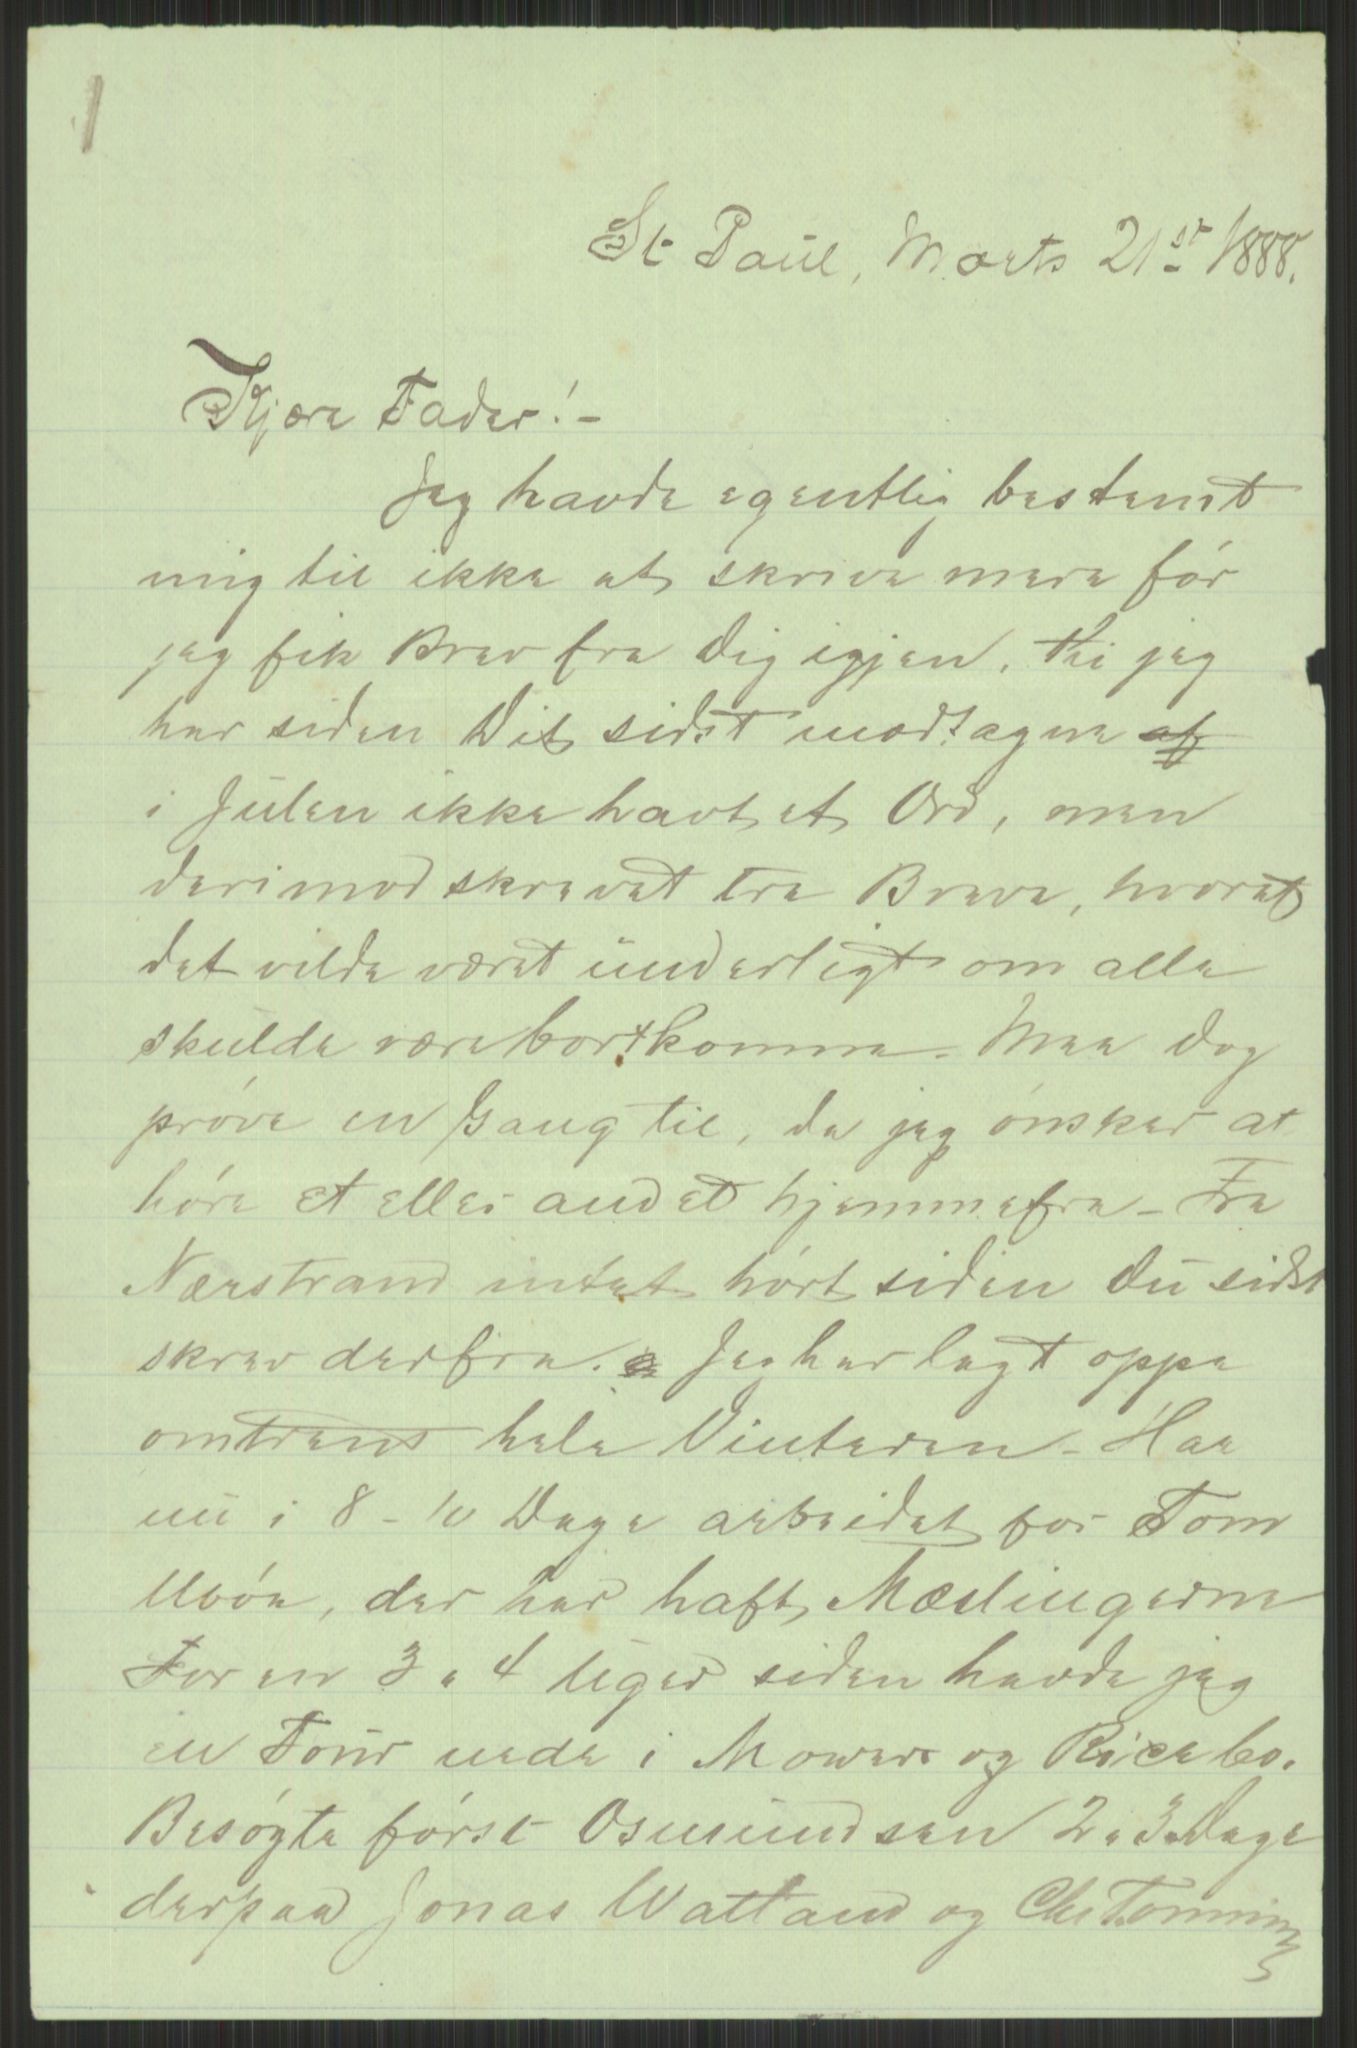 St Paul, Marts 21st 1888.
Kjære Fader! -
Jeg havde egentlig bestemt
mig til ikke at skrive mere før
jeg fik Brev fra Dig igjen, thi jeg
har siden Dit sidst modtagne af
i Julen ikke havt et Ord, men
derimod skrevet tre Breve, hvorat
det vilde været underligt om alle
skulde være bortkomne. Maa dog
prøve en Gang til, da jeg ønsker at
høre et eller andet hjemmefra - Fra
Nærstrand intet hørt siden Du sidst
skrev derfra. Jeg har lagt oppe
omtrent hele Vinteren - Har
nu i 8 - 10 Dage arbeidet for Tom
der har haft Mæslingerne
For en 3 a 4 Uger siden havde jeg
en Tour nede i Mower og Rice Co.
Besøgte først Osmundsen 2 a 3 Dage
derpaa Jonas Watland og Chr